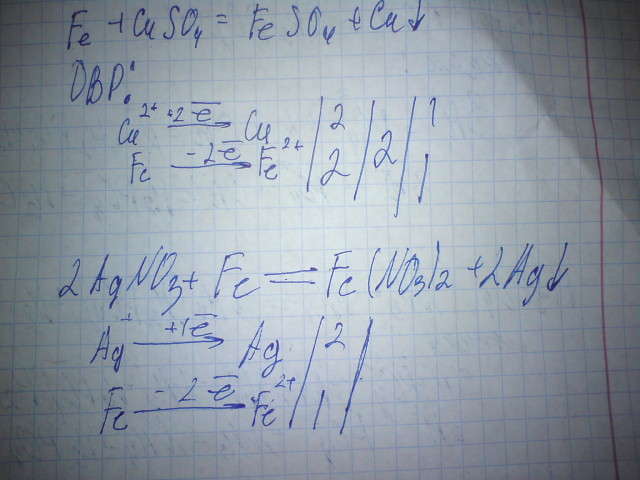 Fe + CuSO₄ = FeSO₄ + Cu↓
ОВР:
Cu²⁺ +2e̅ → Cu | 2 | 2 | 1
Fe -2e̅ → Fe²⁺ | 2 | | 1
2AgNO₃ + Fe = Fe(NO₃)₂ + 2Ag↓
Ag⁺ +1e̅ → Ag | 2 |
Fe -2e̅ → Fe²⁺ | 1 |